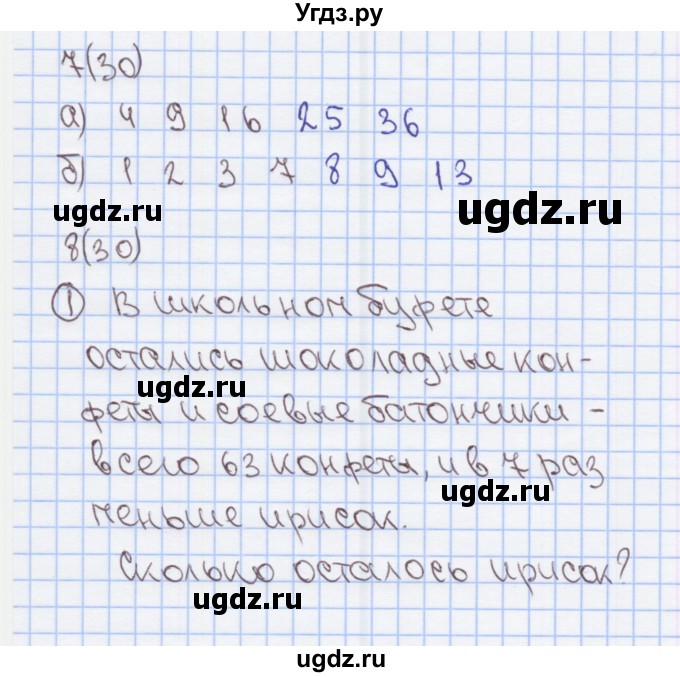 Угдз.ру
7(30)
а) 4 9 16 25 36
б) 1 2 3 7 8 9 13
ugdz.ru
ugdz.ru
8(30)
① В школьном буфете
остались шоколадные кон-
ugdz.ru
феты и соевые батончики -
всего 63 конфеты, и в 7 раз
ugdz.ru
меньше ирисок.
Сколько осталось ирисок?
ugdz.ru
ugdz.ru